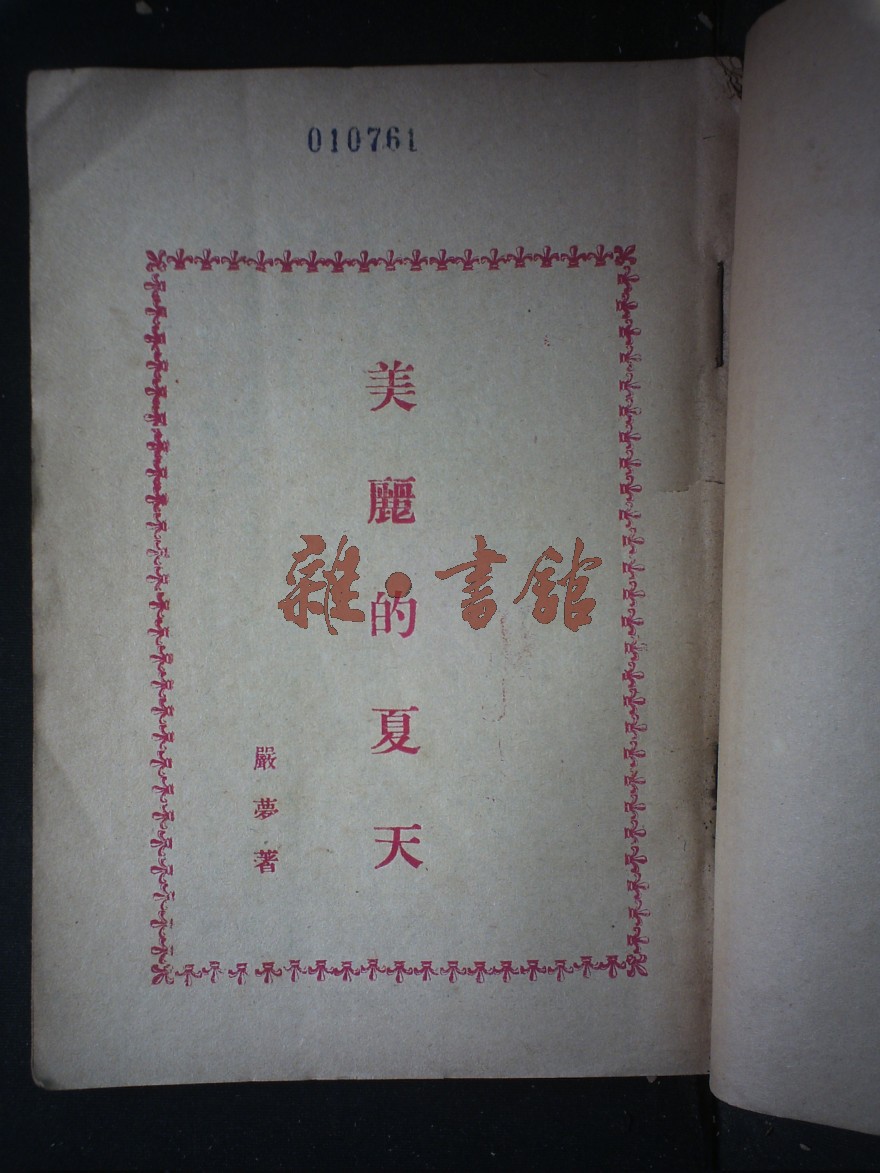 010761
美麗的夏天
嚴夢著
雜·書館